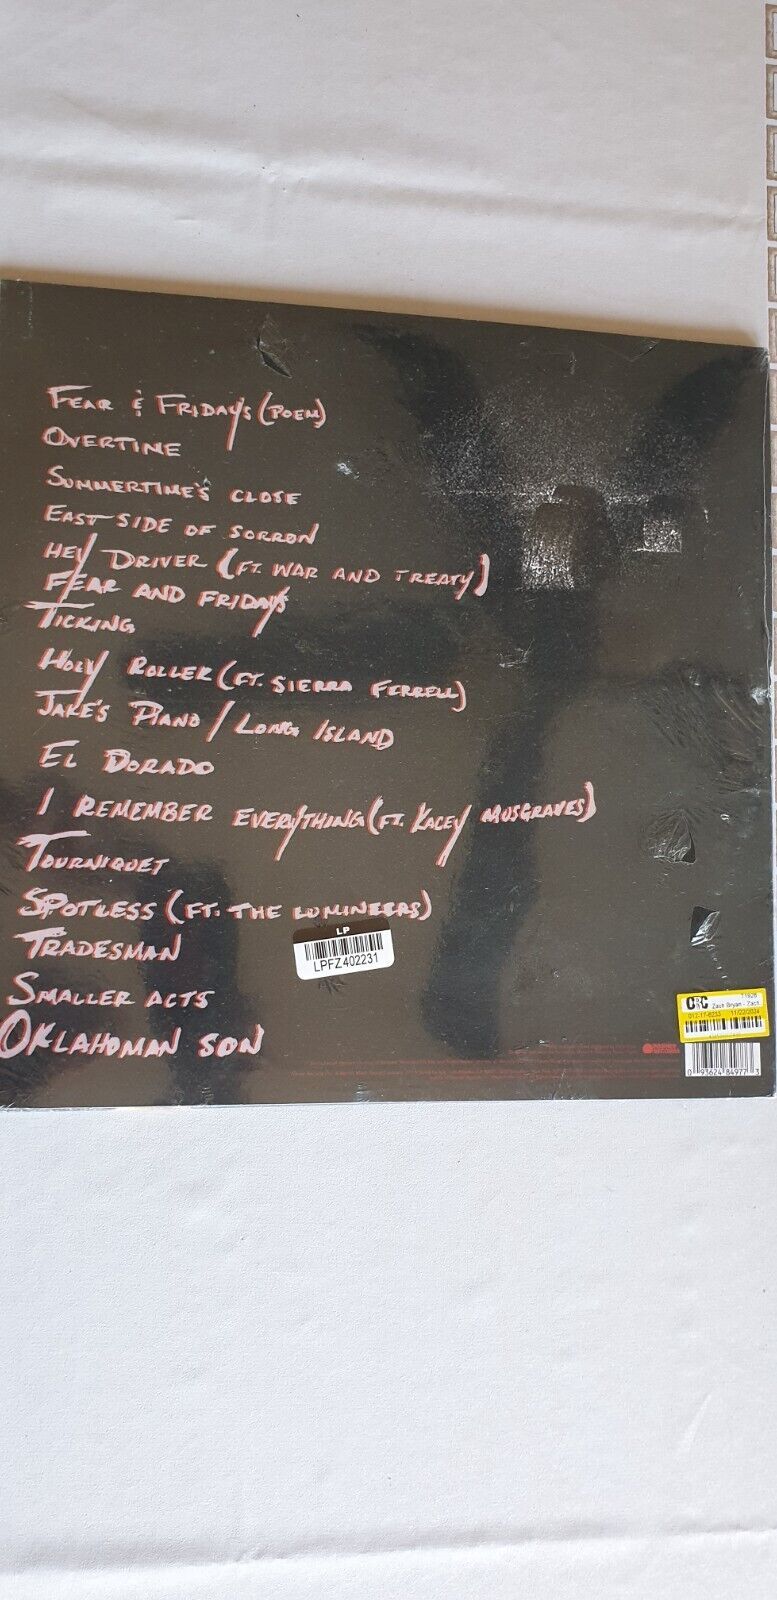 FEAR & FRIDAYS (POEM)
OVERTIME
SUMMERTIME'S CLOSE
EAST SIDE OF SORROW
HEY DRIVER (FT. WAR AND TREATY)
FEAR AND FRIDAYS
TICKING
HOLY ROLLER (FT. SIERRA FERRELL)
JAKE'S PIANO / LONG ISLAND
EL DORADO
I REMEMBER EVERYTHING (FT. KACEY MUSGRAVES)
TOURNIQUET
SPOTLESS (FT. THE LUMINEERS)
TRADESMAN
SMALLER ACTS
OKLAHOMAN SON
LP
LPFZ402231
CRC
Zach Bryan - Zach
11/22/2024
0 93624 84977 3